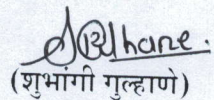 (शुभांगी गुल्हाणे)